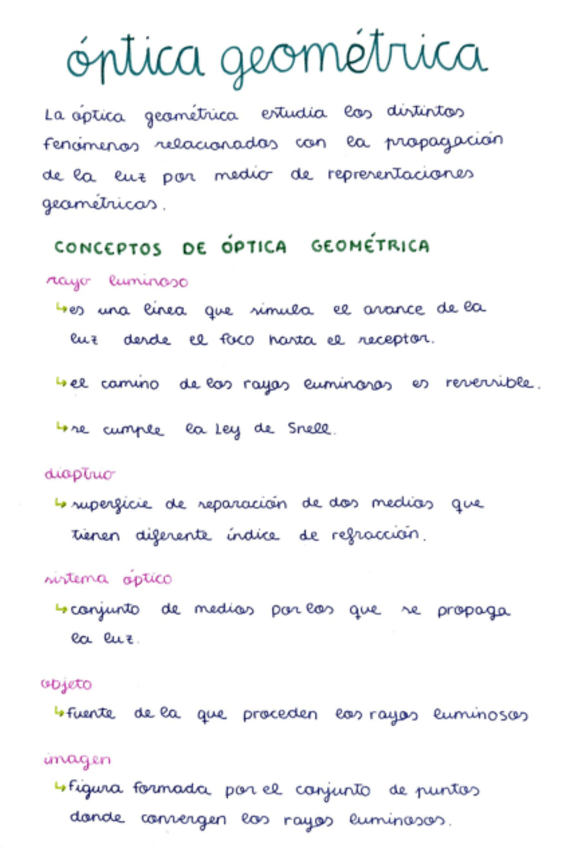 óptica geométrica
La óptica geométrica estudia los distintos
fenómenos relacionados con la propagación
de la luz por medio de representaciones
geométricas.
CONCEPTOS DE ÓPTICA GEOMÉTRICA
rayo luminoso
↳es una línea que simula el avance de la
luz desde el foco hasta el receptor.
↳el camino de los rayos luminosos es reversible.
↳se cumple la Ley de Snell.
dioptrio
↳superficie de separación de dos medios que
tienen diferente índice de refracción.
sistema óptico
↳conjunto de medios por los que se propaga
la luz.
objeto
↳fuente de la que proceden los rayos luminosos
imagen
↳figura formada por el conjunto de puntos
donde convergen los rayos luminosos.